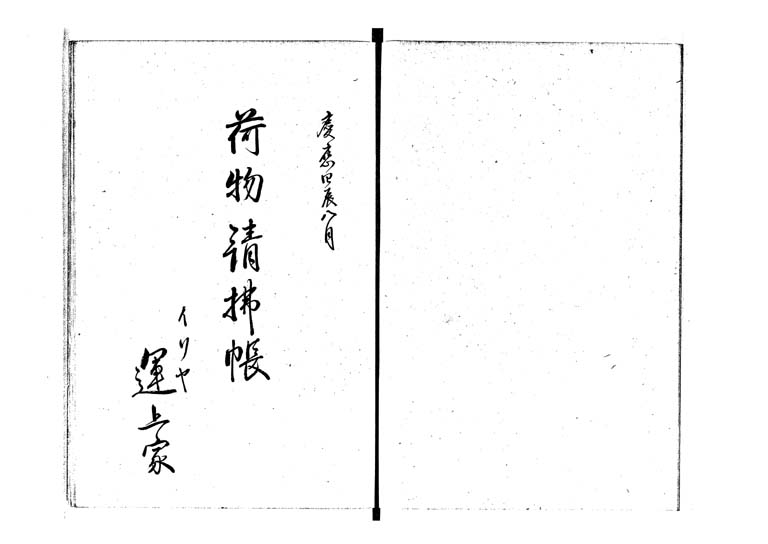 慶應四辰八月
荷物請拂帳
イリヤ
運上家